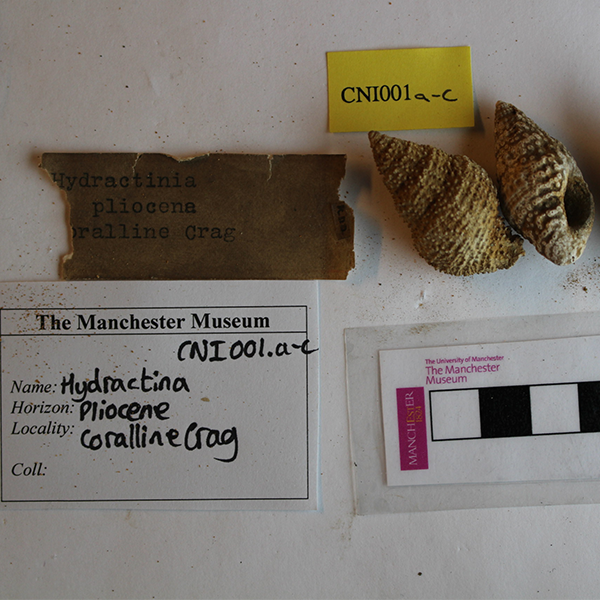 CNI001a-c
Hydractinia
pliocena
oralline Crag
The Manchester Museum
CNI001.a-c
Name: Hydractina
Horizon: Pliocene
Locality: Coralline Crag
Coll:
The University of Manchester
The Manchester
Museum
MANCHESTER
1824